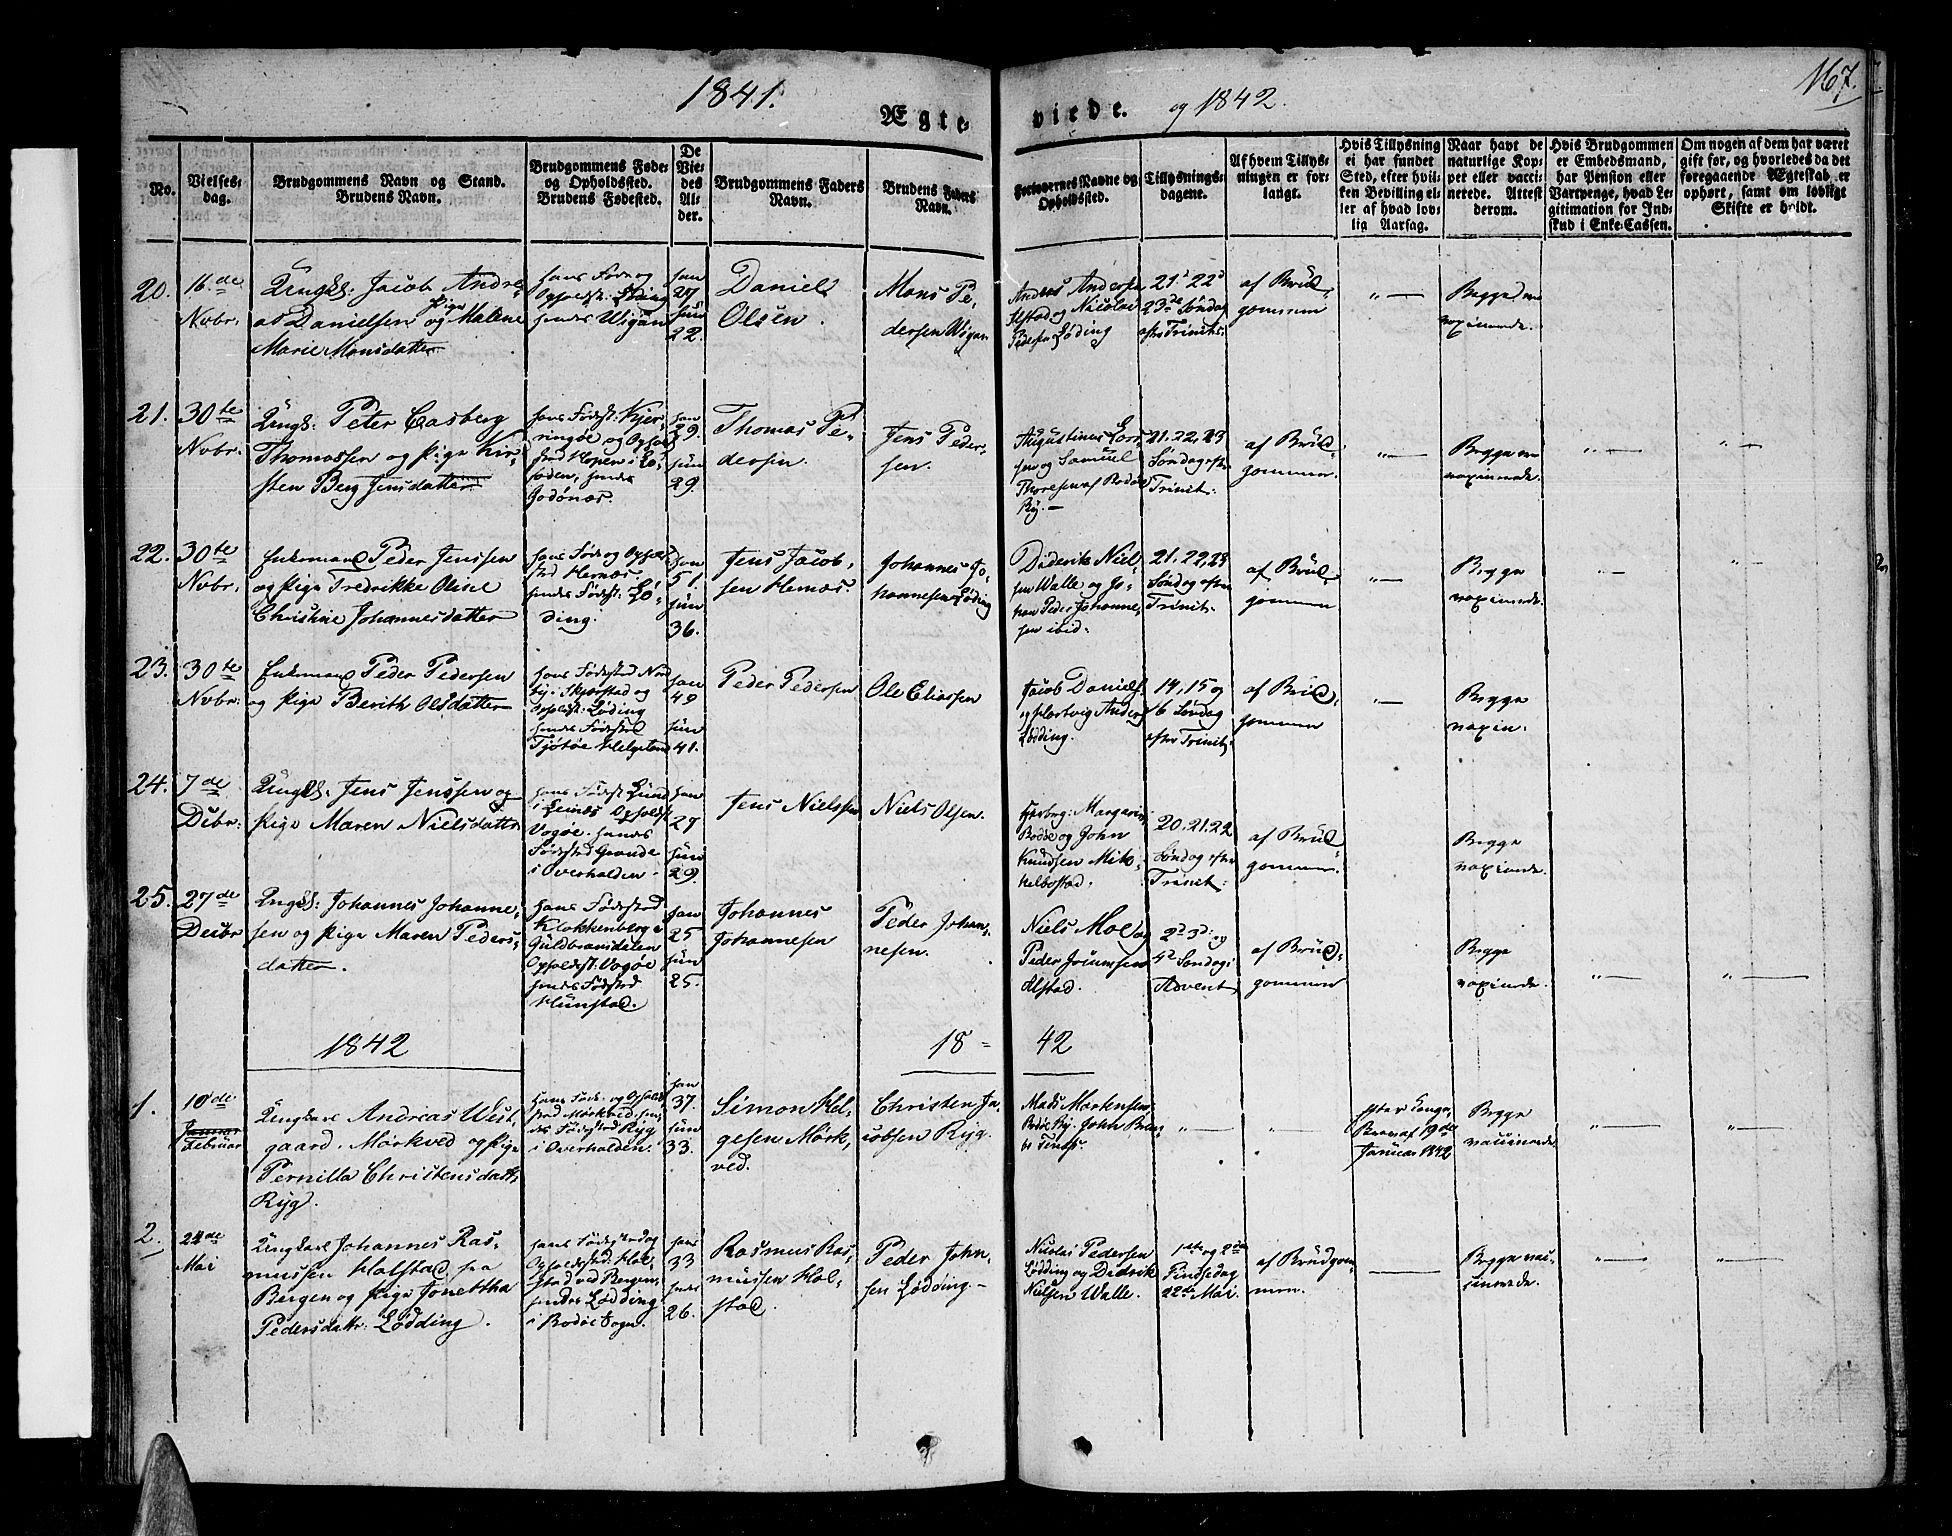 1841.
Ægte
viede.
og 1842.
167.
No.
Vielses-
dag.
Brudgommens Navn og Stand.
Brudens Navn.
Brudgommens Føde-
og Opholdssted.
Brudens Fødested.
De
Vie-
des
Al-
der.
Brudgommens Faders
Navn.
Brudens Faders
Navn.
Forlovernes Navne og
Opholdssted.
Tillysnings-
dagene.
Af hvem Tillys-
ningen er for-
langt.
Hvis Tillysning
ei har fundet
Sted, efter hvil-
ken Bevilling el-
ler af hvad lov-
lig Aarsag.
Naar havt de
naturlige Kop-
per eller vacci-
nerede. Attest
derom.
Hvis Brudgommen
er Embedsmand,
har Pension eller
Vartpenge, hvad Le-
gitimation for Ind-
skud i Enke-Cassen.
Om nogen af dem har været
gift før, og hvorledes da det
foregaaende Ægteskab er
ophørt, samt om lovligt
Skifte er holdt.
20.
16de
Nvbr.
Ungk: Jacob Andre-
as Danielsen og Pige Malene
Marie Monsdatter
hans Føde og
Opholdst: Løding
hendes Wigan
han
27
hun
22.
Daniel
Olsen.
Mons Pe-
dersen Wigan
Anders Andersen
Alstad og Nicolai
Pedersen Løding
21d 22d
23de Søndag
eftr Trinit:
af Brud-
gommen
" —
Begge va-
xinerede.
21.
30te
Nvbr.
Ungk: Peter Casberg
Thomassen og Pige Kir-
sten Berg Jensdatter
hans Fødest: Kjer-
ringøe og Ophold-
sted Hopen i Lo-
foden, hendes
han
29.
hun
29.
Thomas Pe-
dersen.
Jens Peder-
sen.
Augustinus
sen og Samuel
Thoresen af Bodøe
By. —
21. 22, 23
Søndag eftr
Trinit:
af Brud-
gommen.
" —
Begge va-
xinerede.
" —
" —
22.
30te
Nvbr.
Enkemand Peder Jenssen
og Pige Fredrikke Oline
Christine Johannesdatter
hans Føde og Ophold-
sted Hernæs.
hendes Fødest: Lø-
ding.
han
51.
hun
36.
Jens Jacob-
sen Hernæs.
Johannes Jo-
hannesen Løding
Diderik Niel-
sen Walle og Jo-
han Peder Johanne-
sen ibid:
21. 22, 23
Søndag eftr
Trinit:
af Brud-
gommen
" —
Begge
vaxinerede.
" —
" —
23.
30te
Nvbr:
Enkemand Peder Pedersen
og Pige Berith Olsdatter
hans Fødested Nord
by i Skjerstad og
Opholdst: Løding
hendes Fødested
Tjøtøe Helgeland
han
49
hun
41.
Peder Pedersen
Ole Eliassen
Jacob Daniels:
og Hartvig Anders:
Løding.
14, 15 og
16 Søndag
eftr Trinit:
af Brud-
gommen
" —
Begge
vaxin.
24.
7de
Debr.
Ungk: Jens Jenssen og
Pige Maren Nielsdattr
hans Fødested Lund
i Leinæs Opholdst:
Vogøe. hendes
Fødested Grande
i Overhalden.
han
27
hun
29.
Jens Nielssen
Niels Olsen.
Margarin
Bodøe og John
Knudsen Mik-
kelbostad.
20. 21. 22
Søndag eftr
Trinit:
af Brud-
gommen.
Begge
vaxinerede.
25.
27de
Decbr
Ungk: Johannes Johanne-
sen og Pige Maren Peders-
datter.
hans Fødested
Klokkenberg i
Guldbransdalen
Opholdst: Vogøe
hendes Fødested
Hunstad.
han
25
hun
25.
Johannes
Johannesen
Peder Johan-
nesen.
Niels Moe og
Peder
Alstad.
2d 3d: og
4d Søndag i
Advent
af Brud-
gommen
Begge
vaxinerede.
" —
" —
1842
18 =
42
1.
10de
Januar
Februar
Ungkarl Andreas West-
gaard Mørkved og Pige
Pernilla Christensdattr
Ryg.
hans Føde- og Ophold-
sted Mørkved. hen-
des Fødested Ryg
i Overhalden.
han
37.
hun
33.
Simon Hel-
gesen Mørk-
ved.
Christen Ja-
cobsen Ryg.
Mads Mortensen
Bodøe By. John
" —
"
Efter Konge-
Brev af 19de
Januar 1842
Begge
vaccinerede.
" —
" —
2.
22de
Mai
Ungkarl Johannes Ras-
mussen Holstad fra
Bergen og Pige Jonettha
Pedersdattr: Lødding.
hans Fødested og
Opholdsted. Hol-
stad ved Bergen,
hendes Lødding
i Bodøe Sogn.
hans
33
hendes
26.
Rasmus Ras-
mussen Hol-
stad.
Peder John-
sen Lødding —
Nicolai Pedersen
Lødding og Didrik
Nielsen Walle.
1ste og 2den
Pindsedag
22de Mai.
af Brudgom-
men.
—
Begge vac-
cinerede.
" —
" —